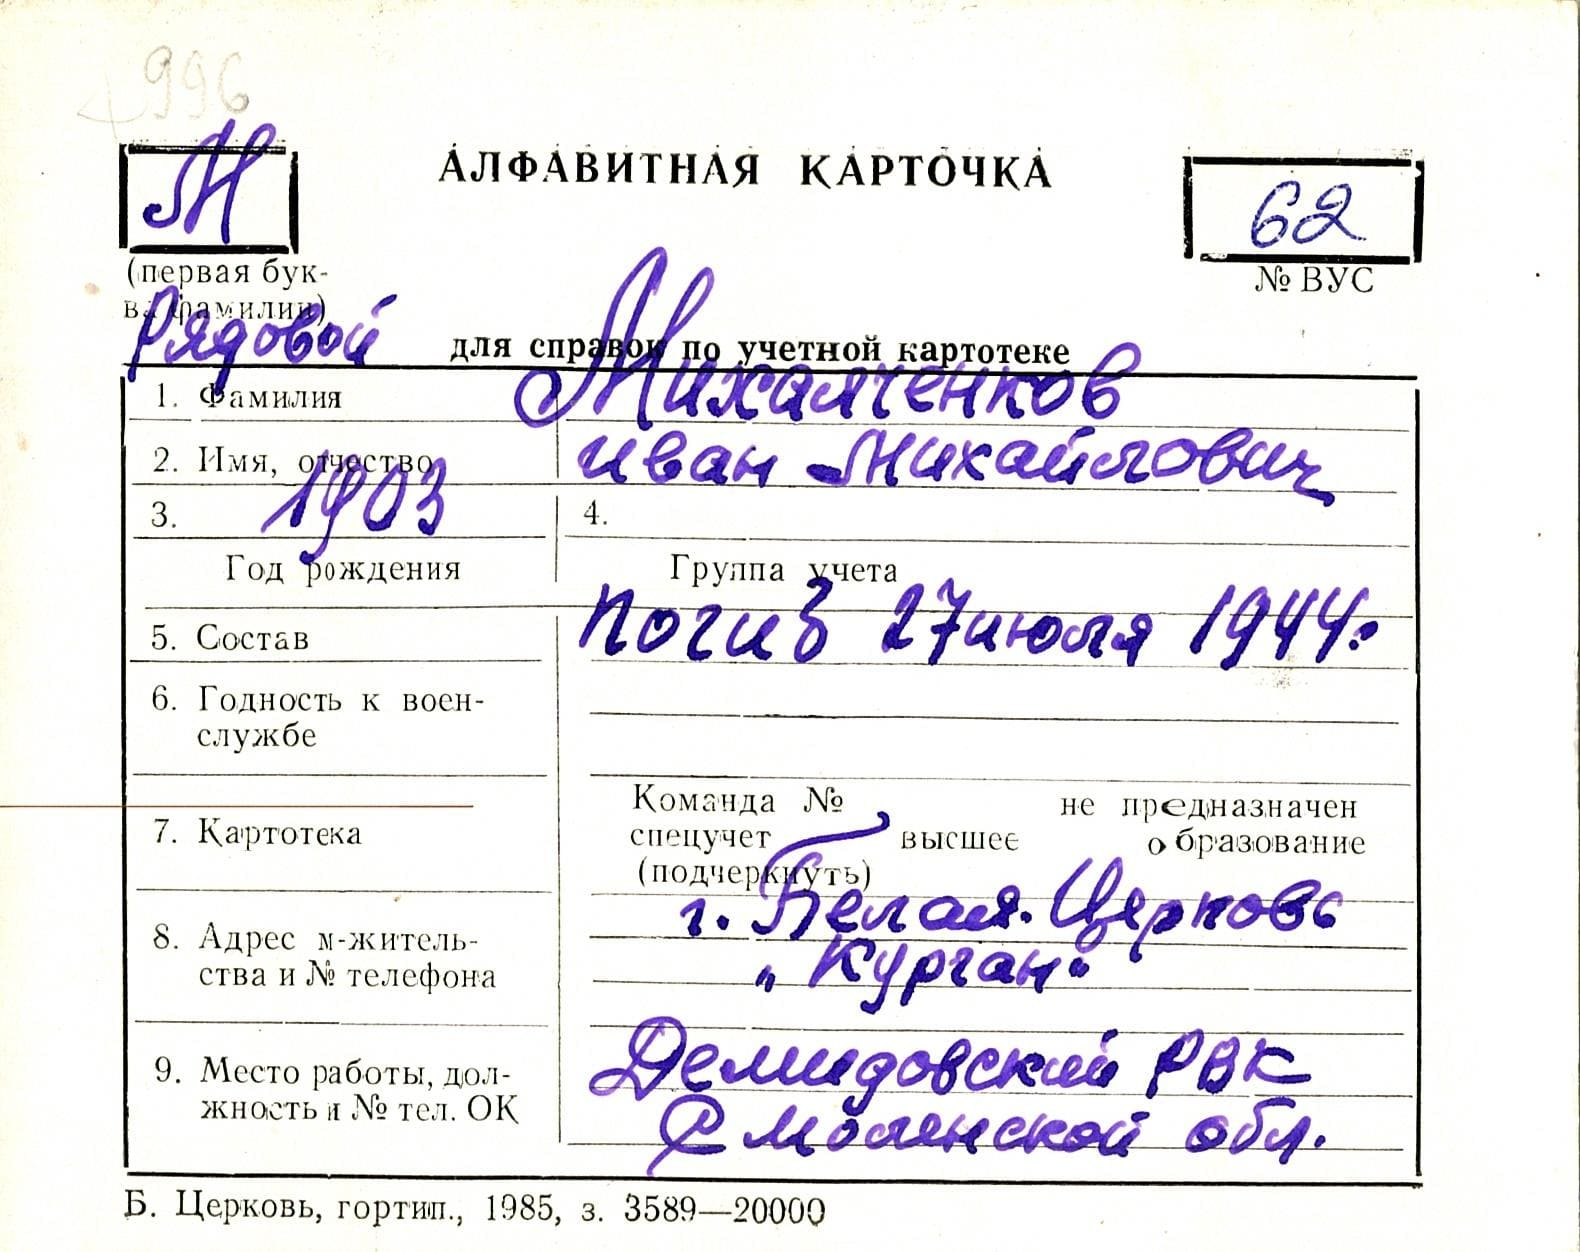 996
М
АЛФАВИТНАЯ КАРТОЧКА
62
(первая бук-
ва фамилии)
№ ВУС
Рядовой
для справок по учетной картотеке
1. Фамилия Михалченков
2. Имя, отчество Иван Михайлович
3. 1903 4.
Год рождения Группа учета
5. Состав погиб 27 июля 1944г.
6. Годность к воен-
службе
Команда № не предназначен
7. Картотека спецучет высшее образование
(подчеркнуть)
г. Белая Церковь
8. Адрес м-житель-
ства и № телефона "Курган"
9. Место работы, дол- Демидовский РВК
жность и № тел. ОК Смоленской обл.
Б. Церковь, гортип., 1985, з. 3589—20000